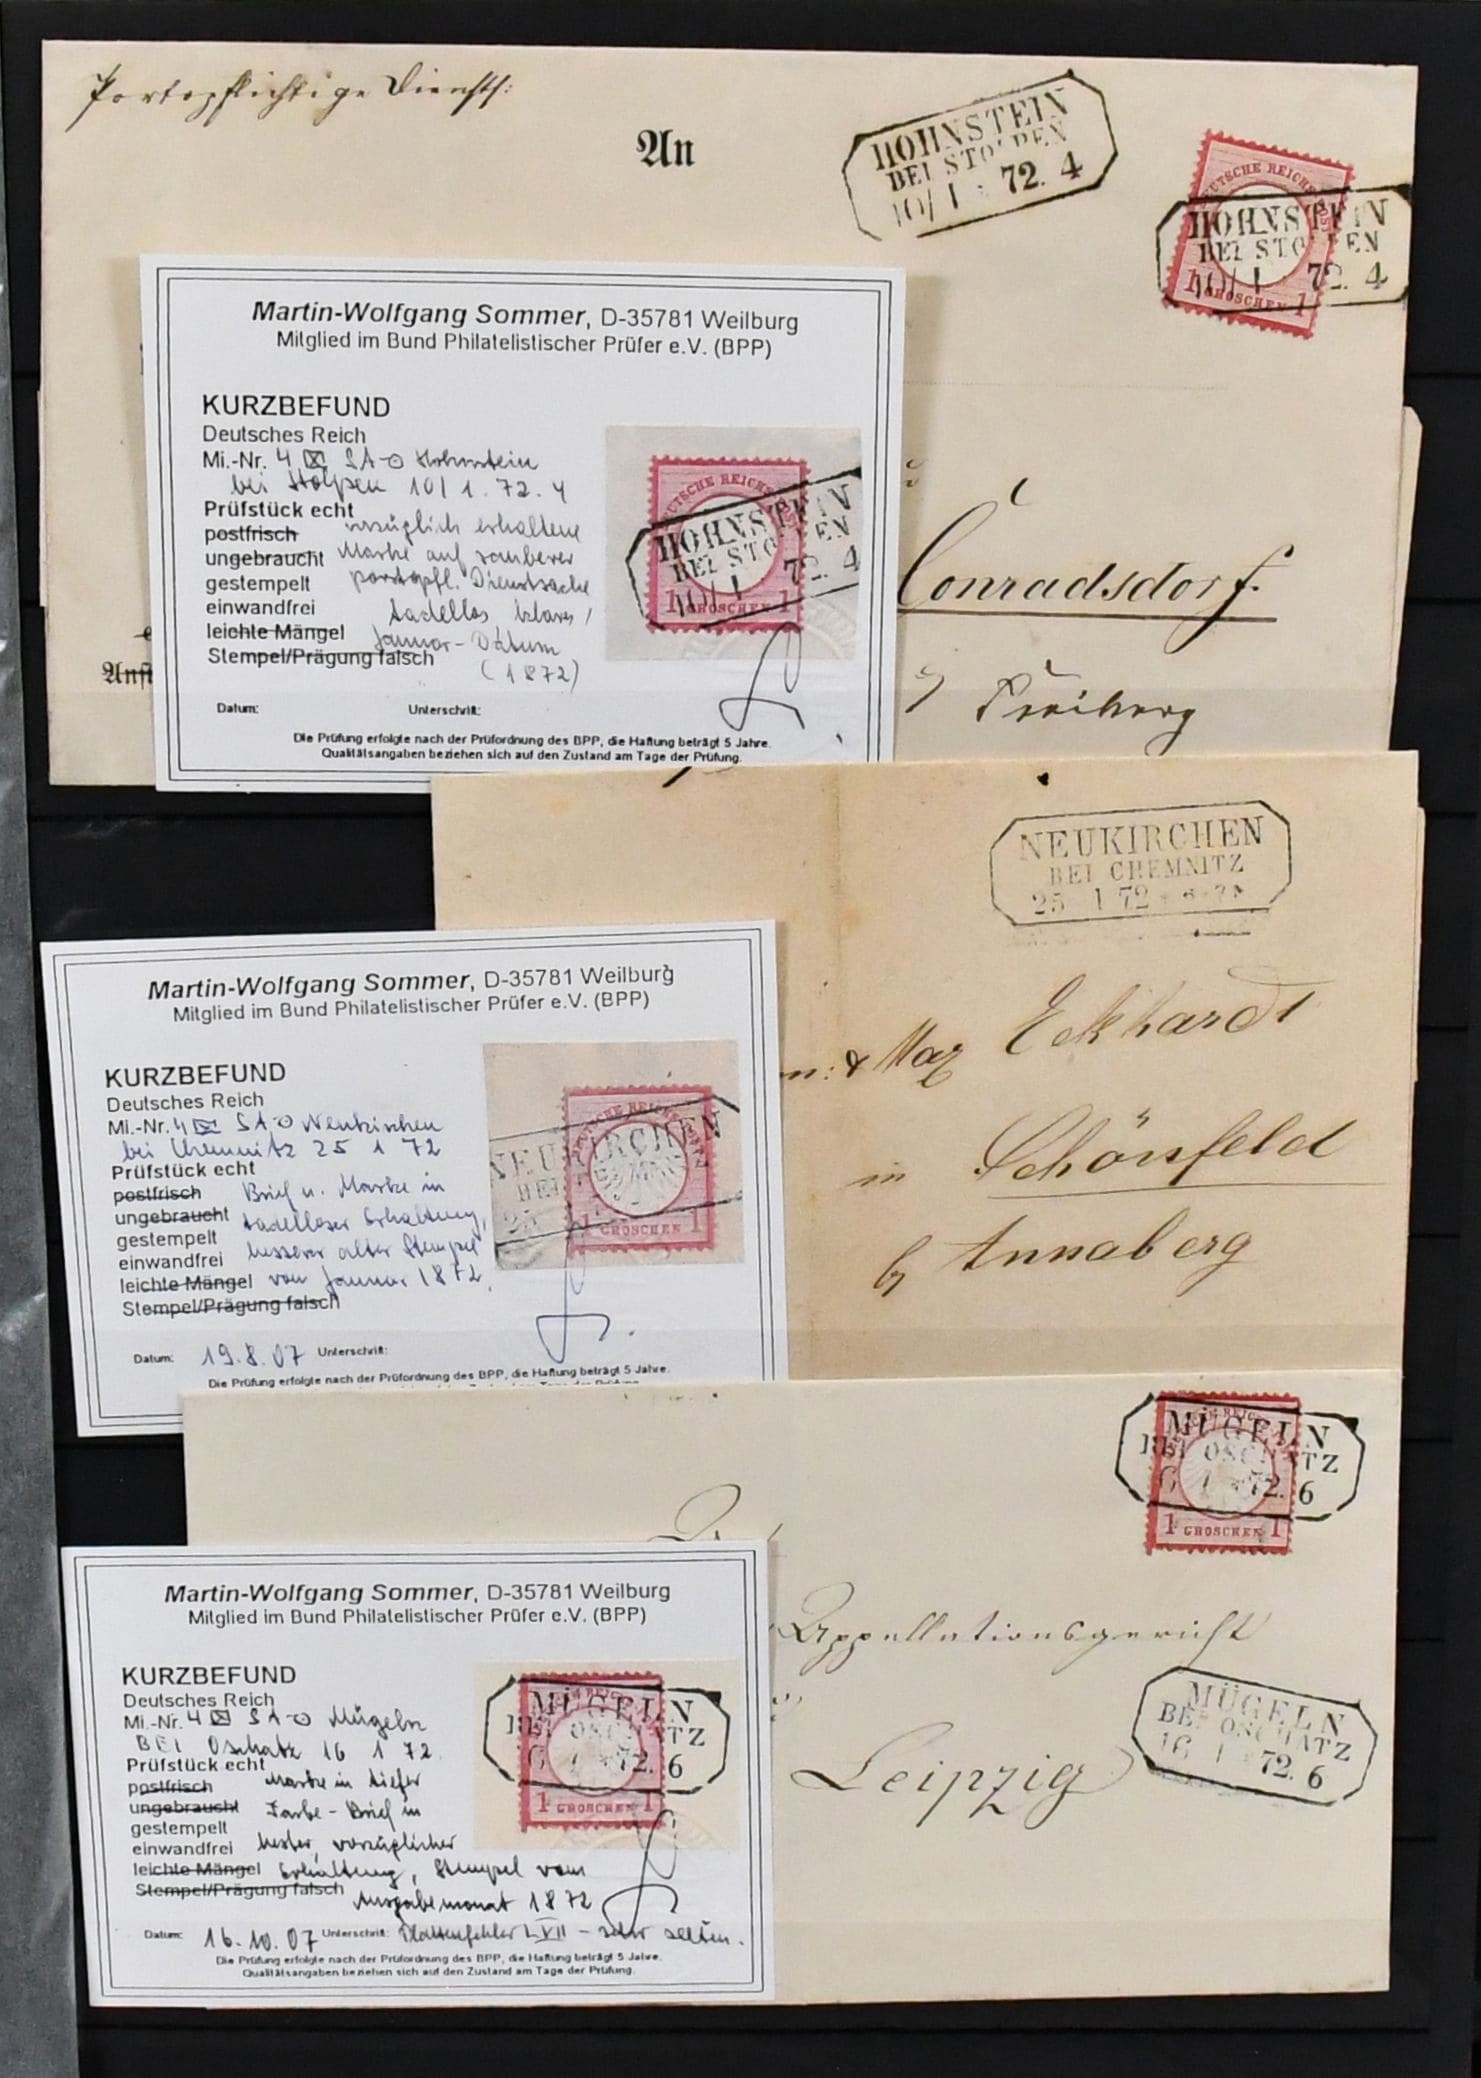 Portopflichtige Dienst:
An
HOHNSTEIN
BEI STOLPEN
10/1 * 72. 4
DEUTSCHE REICHS POST
1 GROSCHEN 1
HOHNSTEIN
BEI STOLPEN
10/1 72. 4
Conradsdorf.
Freiberg
Martin-Wolfgang Sommer, D-35781 Weilburg
Mitglied im Bund Philatelistischer Prüfer e.V. (BPP)
KURZBEFUND
Deutsches Reich
Mi.-Nr. 4 SA Hohnstein
bei Stolpen 10/1.72.4
Prüfstück echt
postfrisch vorzüglich erhaltene
ungebraucht Marke auf sauberer
gestempelt portopfl. Dienstsache
einwandfrei tadellos klares
leichte Mängel Januar-Datum
Stempel/Prägung falsch (1872)
DEUTSCHE REICHS POST
1 GROSCHEN 1
HOHNSTEIN
BEI STOLPEN
10/1 72. 4
Datum: Unterschrift:
Die Prüfung erfolgte nach der Prüfordnung des BPP, die Haftung beträgt 5 Jahre.
Qualitätsangaben beziehen sich auf den Zustand am Tage der Prüfung.
NEUKIRCHEN
BEI CHEMNITZ
25 1 72
Eckhardt
in Schönfeld
b/ Annaberg
Martin-Wolfgang Sommer, D-35781 Weilburg
Mitglied im Bund Philatelistischer Prüfer e.V. (BPP)
KURZBEFUND
Deutsches Reich
Mi.-Nr. 4 SA Neukirchen
bei Chemnitz 25 1 72
Prüfstück echt
postfrisch Brief u. Marke in
ungebraucht tadelloser Erhaltung,
gestempelt
einwandfrei besserer alter Stempel
leichte Mängel von Januar 1872.
Stempel/Prägung falsch
NEUKIRCHEN
BEI
25
1 GROSCHEN 1
Datum: 19.8.07 Unterschrift:
Die Prüfung erfolgte nach der Prüfordnung des BPP, die Haftung beträgt 5 Jahre.
MÜGELN
BEI OSCHATZ
6 1 * 72. 6
1 GROSCHEN 1
Appellationsgericht
Leipzig
MÜGELN
BEI OSCHATZ
16 1 * 72. 6
Martin-Wolfgang Sommer, D-35781 Weilburg
Mitglied im Bund Philatelistischer Prüfer e.V. (BPP)
KURZBEFUND
Deutsches Reich
Mi.-Nr. 4 SA Mügeln
BEI Oschatz 16 1 72
Prüfstück echt
postfrisch Marke in tiefer
ungebraucht Farbe - Brief in
gestempelt
einwandfrei bester, vorzüglicher
leichte Mängel Erhaltung, Stempel vom
Stempel/Prägung falsch Ausgabemonat 1872
MÜGELN
BEI OSCHATZ
6 1 * 72. 6
1 GROSCHEN 1
Datum: 16.10.07 Unterschrift: Plattenfehler LVII - sehr selten.
Die Prüfung erfolgte nach der Prüfordnung des BPP, die Haftung beträgt 5 Jahre.
Qualitätsangaben beziehen sich auf den Zustand am Tage der Prüfung.